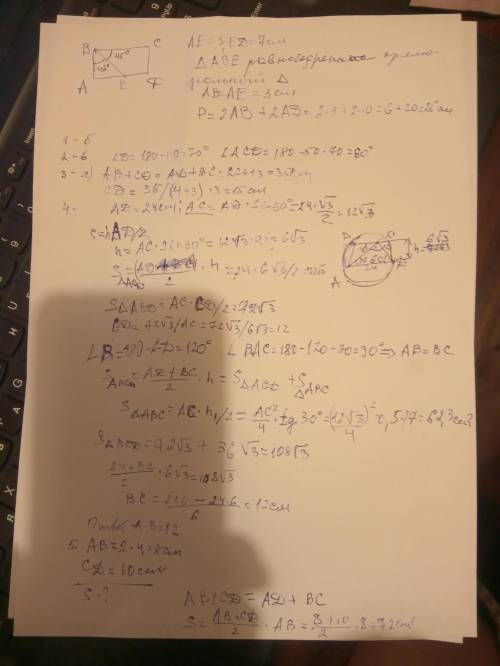 B C
45°
45°
A E D
AE = 3; ED = 7см
△ABE равнобедренный прямо-
угольный △
AB = AE = 3см
P = 2AB + 2AD = 2·3 + 2·10 = 6 + 20 = 26см
1 - б
2 - в ∠D = 180 - 110 = 70° ∠ACD = 180 - 50 - 70 = 60°
3 - AB + CD = AD + BC
CD = 35/(4+3)·3 = 15см
4. AD = 24см; AC = AD·Sin60° = 24·√3/2 = 12√3
h = AC·Sin30° = 12√3·0,5 = 6√3
S△ACD = AD·h/2 = 24·6√3/2 = 72√3
6√3
24
S△ACD = AC·CD/2 = 72√3
CD = 72√3/AC = 72√3/6√3 = 12
∠B = 180 - ∠D = 120° ∠BAC = 180 - 120 - 30 = 30° ⇒ AB = BC
SABCD = AD + BC / 2 · h = S△ACD + S△ABC
S△ABC = AC·h₁/2 = AC²/4 · tg 30° = (12√3)²/4 · 0,577 = 62,3см²
SABCD = 72√3 + 36√3 = 108√3
24+BC / 2 · 6√3 = 108√3
BC = 216 - 24·6 / 6 = 12см
AB = 12
5. AB = 2·4 = 8см
CD = 10см
S - ?
AB + CD = AD + BC
S = AB + CD / 2 · AB = 8 + 10 / 2 · 8 = 72см²